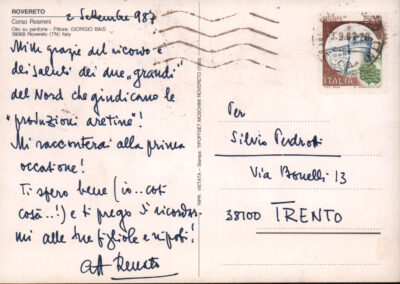 ROVERETO
Corso Rosmini
Olio su panforte - Pittore: GIORGIO BAIS
38068 Rovereto (TN) Italy
2 Settembre '987
Mille grazie del ricordo e
dei saluti dei due "grandi"
del Nord che giudicano le
"produzioni aretine"!
Mi racconterai alla prima
occasione!
Ti spero bene (io.. così
così..!) e ti prego di ricordar-
mi alle tue figliole e nipoti!
Renato
RIPR. VIETATA - Stampa: TIPOFFSET MOSCHINI ROVERETO
ITALIA
Per
Silvio Pedrotti
Via Bonelli 13
38100 TRENTO